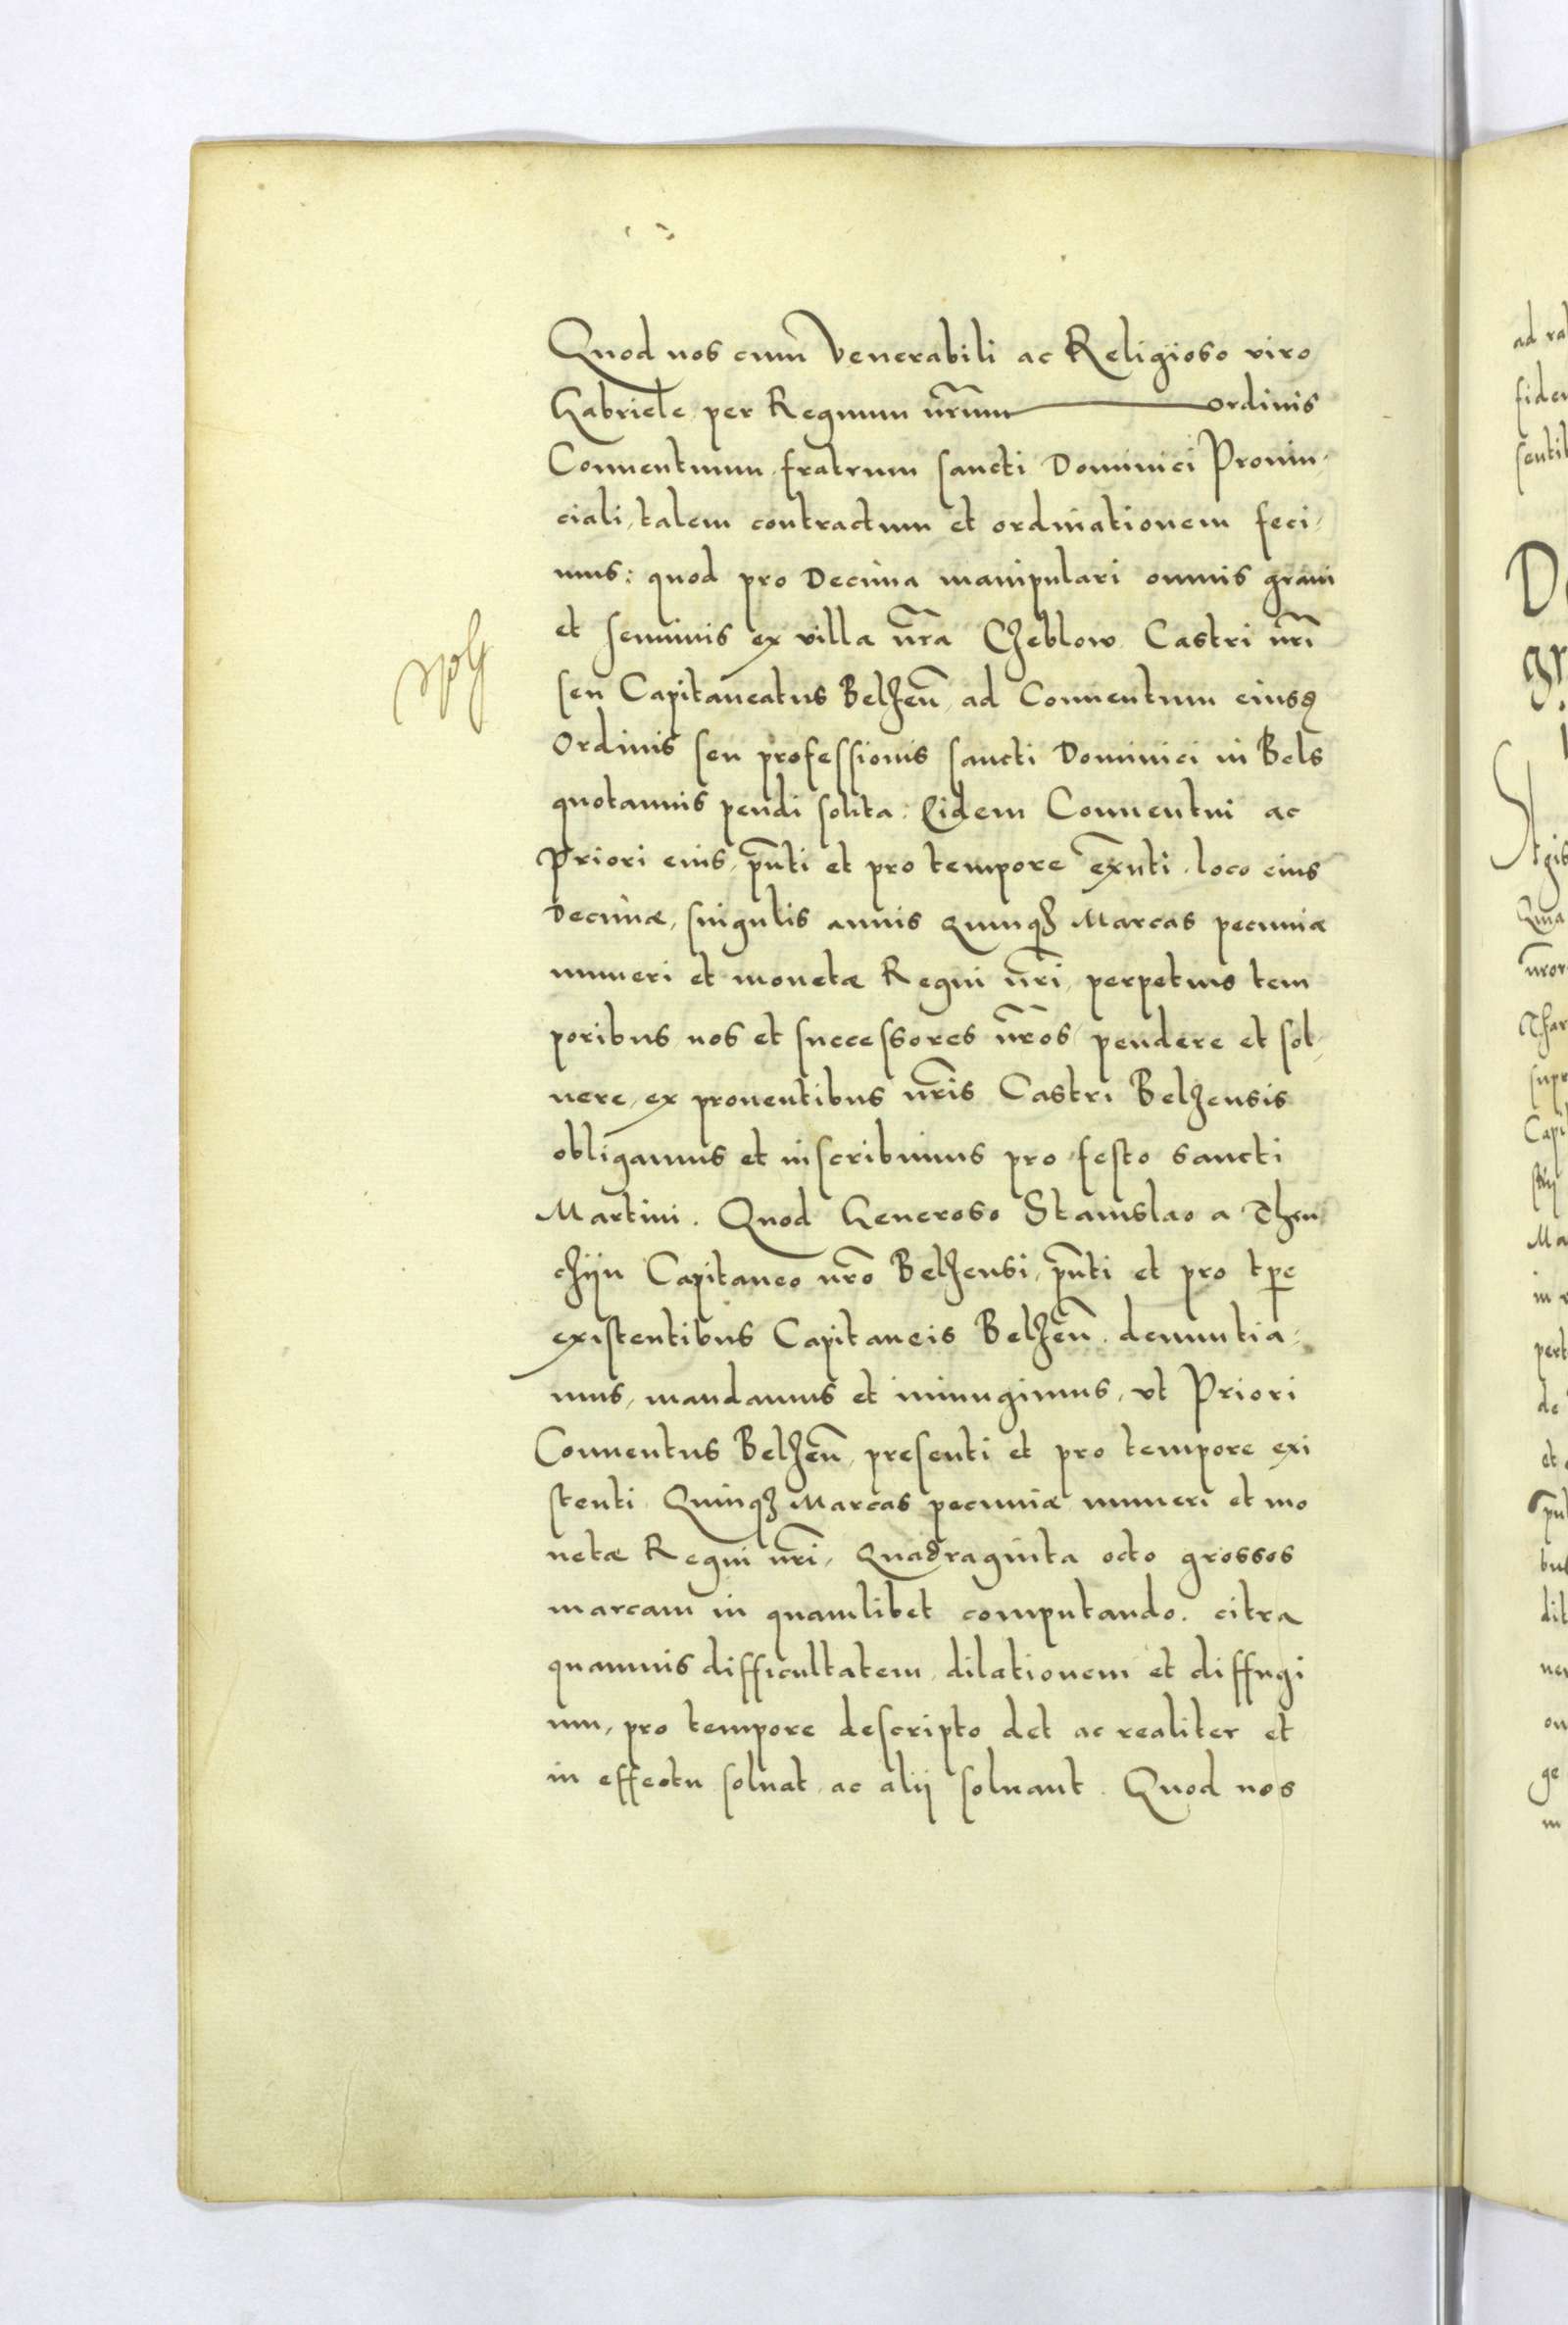 Quod nos cum Venerabili ac Religioso viro
Gabriele per Regnum nr̄um ordinis
Conuentuum fratrum sancti Dominici Prouin-
ciali, talem contractum et ordinationem feci-
mus: quod pro Decima manipulari omnis grani
et seminis ex villa nr̄a Czeblow Castri nr̄i
seu Capitaneatus Belzen̄, ad Conuentum eiusd
Ordinis seu professionis sancti Dominici in Bels
quotannis pendi solita: Eidem Conuentui ac
Priori eius, pn̄ti et pro tempore ex̄nti, loco eius
Decimæ, singulis annis quinqȝ Marcas pecuniæ
numeri et monetæ Regni nr̄i, perpetuis tem
poribus nos et successores nr̄os, pendere et sol-
uere, ex prouentibus nr̄is Castri Belzensis
obligamus et inscribimus pro festo sancti
Martini. Quod Generoso Stanislao a Then
czijn Capitaneo nr̄o Belzensi, pn̄ti et pro tpe
existentibus Capitaneis Belzen̄. denuntia-
mus, mandamus et iniungimus, vt Priori
Conuentus Belzen̄, presenti et pro tempore exi
stenti. Quinqȝ Marcas pecuniæ numeri et mo
netæ Regni nr̄i, Quadraginta octo grossos
marcam in quamlibet computando. citra
quamuis difficultatem, dilationem et diffugi
um, pro tempore descripto det ac realiter et
in effectu soluat, ac alij soluant. Quod nos
ad
fide
sentil
gr
Qua
Capi
Ma
in
pert
de
et
bus
dit
ge